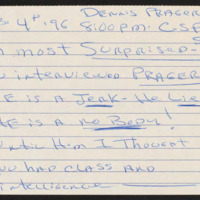 4th, 96 DENNIS PRAGER
8:00PM. CSP
M MOST SURPRISED-
U INTERVIEWED PRAGER
E IS A JERK- HE LIE
E IS A NO BODY!
UNTIL HIM I THOUGHT
OU HAD CLASS AND
INTELLIGENCE